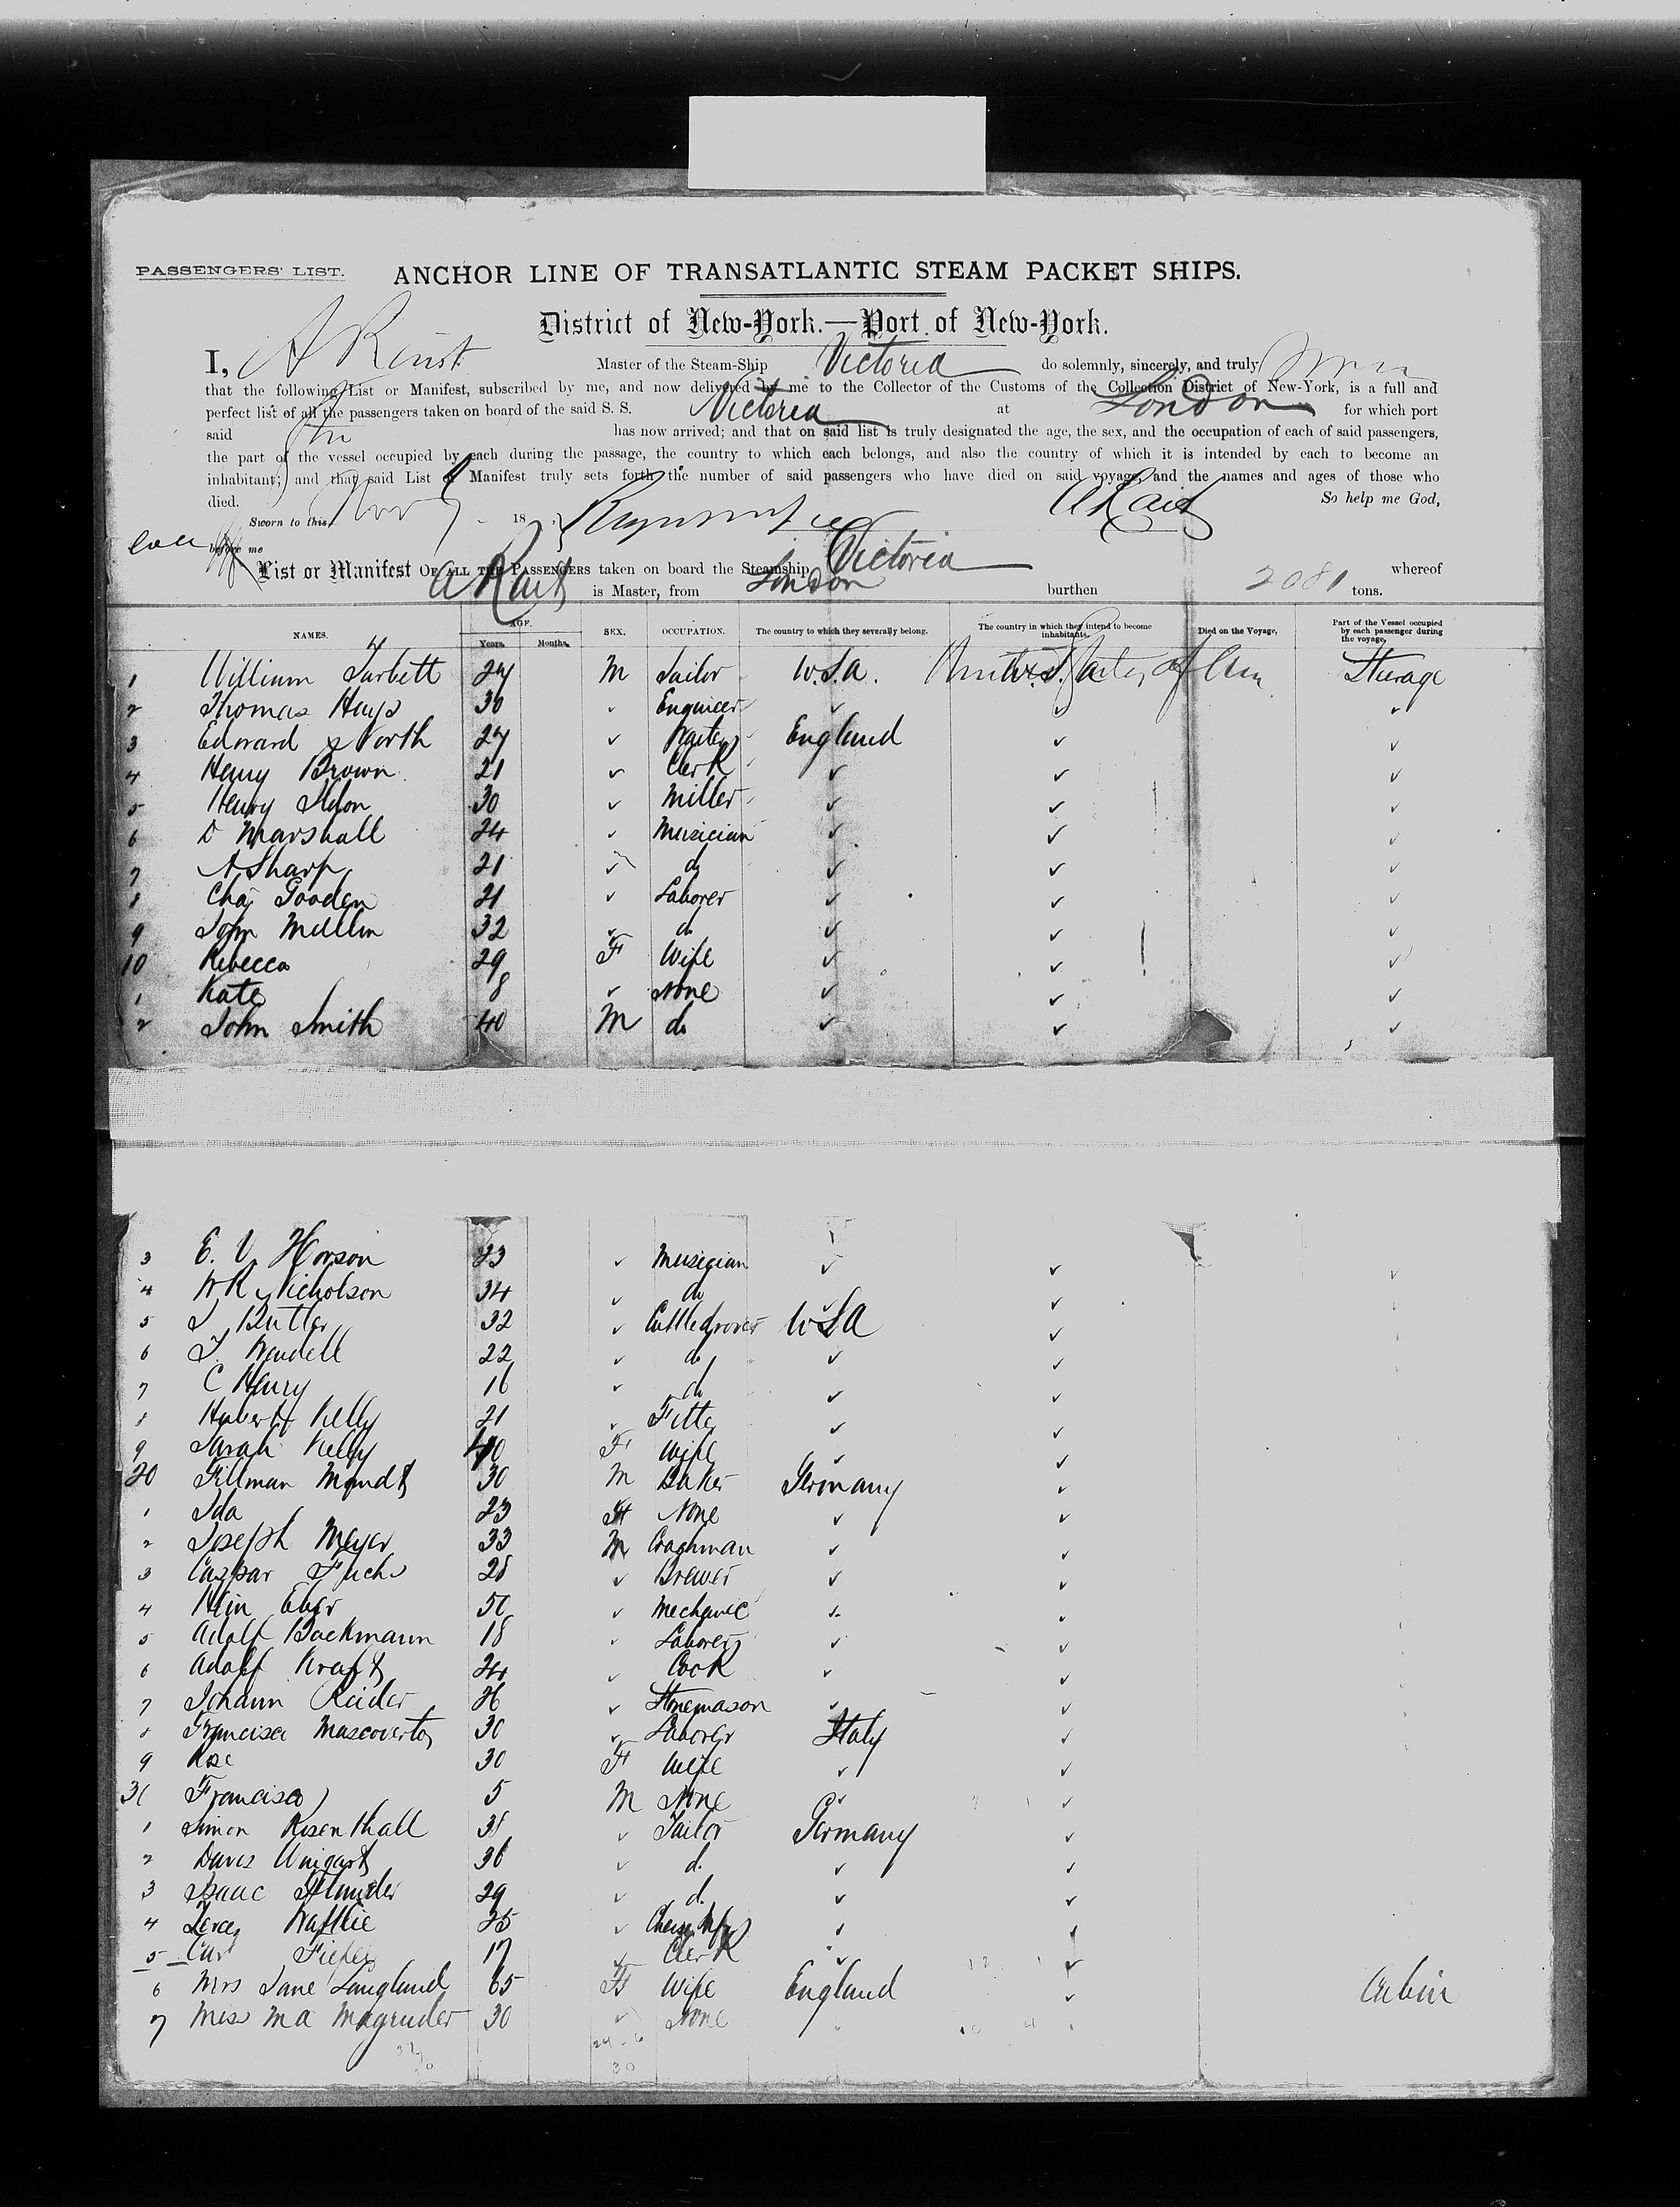 PASSENGERS' LIST.
ANCHOR LINE OF TRANSATLANTIC STEAM PACKET SHIPS.
District of New-York.—Port of New-York.
I, Master of the Steam-Ship Victoria do solemnly, sincerely, and truly
that the following List or Manifest, subscribed by me, and now delivered by me to the Collector of the Customs of the Collection District of New-York, is a full and
perfect list of all the passengers taken on board of the said S. S. Victoria at London for which port
said has now arrived; and that on said list is truly designated the age, the sex, and the occupation of each of said passengers,
the part of the vessel occupied by each during the passage, the country to which each belongs, and also the country of which it is intended by each to become an
inhabitant; and that said List or Manifest truly sets forth the number of said passengers who have died on said voyage, and the names and ages of those who
died. So help me God,
Sworn to this Nov 18
before me
List or Manifest OF ALL THE PASSENGERS taken on board the Steamship Victoria whereof
is Master, from London burthen 2081 tons.
NAMES. AGE. Years. Months. SEX. OCCUPATION. The country to which they severally belong. The country in which they intend to become inhabitants. Died on the Voyage, Part of the Vessel occupied by each passenger during the voyage,
1 William Tarbett M Sailor U.S.A. Sterage
2 Thomas Hays 30 ✓ Engineer ✓ ✓ ✓
3 Edward North ✓ England ✓ ✓
4 Henry Brown 21 ✓ Clerk ✓ ✓ ✓
5 Henry 30 ✓ Miller ✓ ✓ ✓
6 D Marshall 24 ✓ Musician ✓ ✓ ✓
7 A Sharp 21 ✓ do ✓ ✓ ✓
8 Chas Gooden 21 ✓ Laborer ✓ ✓ ✓
9 John Mullin 32 ✓ do ✓ ✓ ✓
10 Rebecca 29 F Wife ✓ ✓ ✓
1 Kate 8 ✓ None ✓ ✓ ✓
2 John Smith 40 M do ✓ ✓ ✓
3 E. V. Horson 23 ✓ Musician ✓ ✓ ✓
4 W R Nicholson 34 ✓ do ✓ ✓
5 Butler 32 ✓ Cattledrover U S A ✓
6 Wendell 22 ✓ do ✓ ✓
7 C Henry 16 ✓ do ✓ ✓
8 Hubert Kelly 21 ✓ Fitter ✓ ✓
9 Sarah Kelly F Wife ✓ ✓
20 Tillman Mondt 30 M Baker Germany ✓
1 Ida 23 F None ✓ ✓
2 Joseph Meyer 33 M Coachman ✓ ✓
3 Caspar Fuchs 28 ✓ Brewer ✓ ✓
4 50 ✓ Mechanic ✓ ✓
5 Adolf Backmann 18 ✓ Laborer ✓ ✓
6 Adolf Kraft 24 ✓ Cook ✓ ✓
7 Johann Reider 26 ✓ Stonemason ✓ ✓
8 Francisca 30 ✓ Laborer Italy ✓
9 Rose 30 F Wife ✓ ✓
Francisco 5 M None ✓ ✓
1 Simon Rosenthall ✓ Tailor Germany ✓
2 36 ✓ do ✓ ✓
3 Isaac 29 ✓ do ✓ ✓
4 25 ✓ ✓ ✓
5 17 ✓ Clerk ✓ ✓
6 Mrs Jane Langland 65 F Wife England ✓ Cabin
7 Miss M A Magruder 30 ✓ None
30